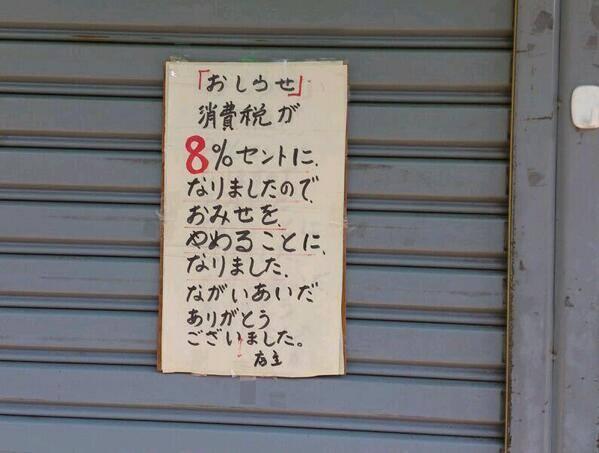 「おしらせ」
消費税が
8%セントに、
なりましたので、
おみせを、
やめることに、
なりました、
ながいあいだ
ありがとう
ございました。
店主